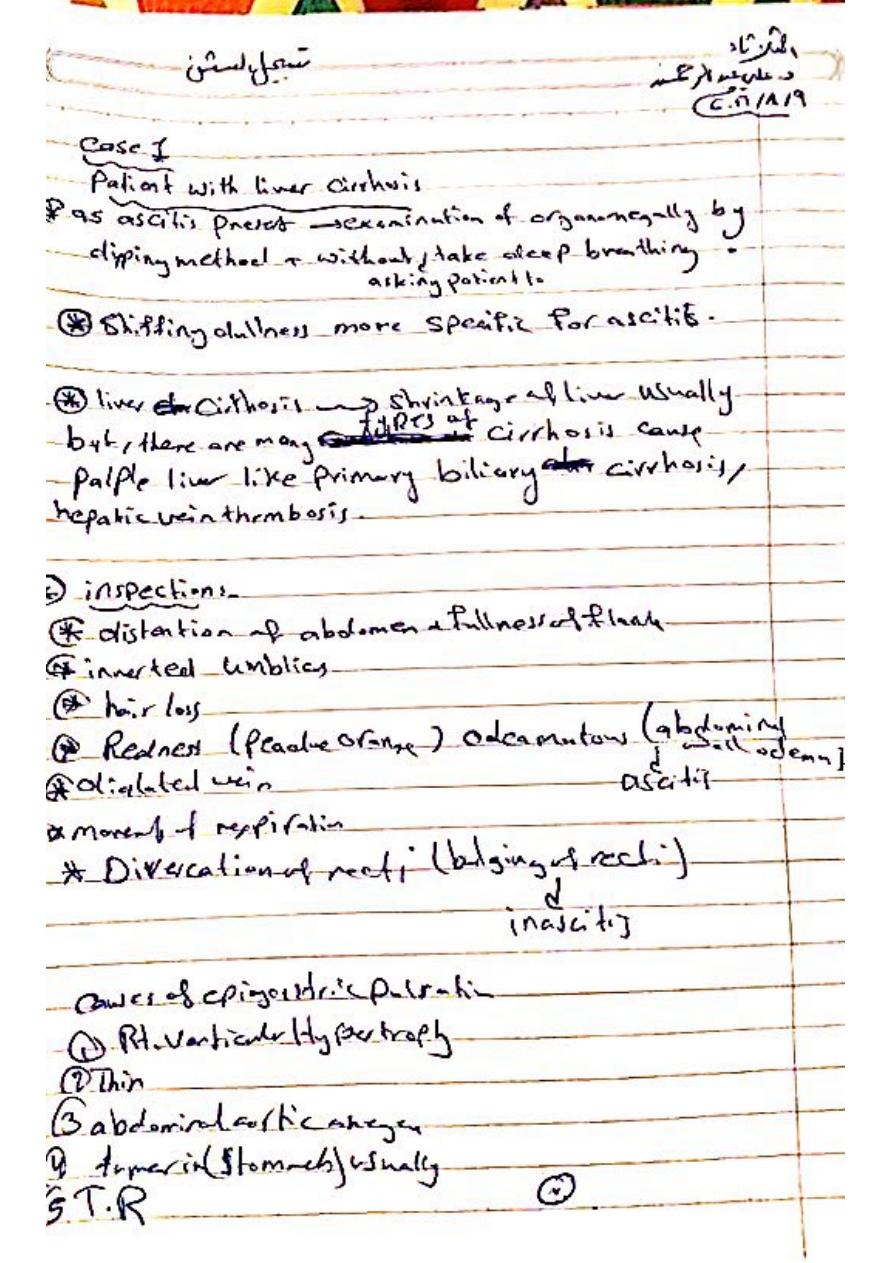 د. علي عبد الرحمن
Case 1
Patient with liver cirrhosis
* as ascitis preset → examination of organomegally by
dipping method + without, take deep breathing .
asking patient to
* Shifting dullness more specific for ascitis.
* liver cirhosis → shrinkage of liver usually
but, there are many types of cirrhosis cause
palple liver like primary biliary cirrhosis,
hepatic vein thrmbosis.
inspections
* distention of abdomen + fullness of flank
* inverted umblics
* hair loss
* Redness (peadue orange) odeamutous (abdominy wall odema)
↓
ascitis
* dialated vein
* movent of respiratin
* Divercation of recti (bulging of recti)
↓
in ascitis
causes of epigastric pulsatin
① Rt. venticular Hypertrophy
② Thin
③ abdominal aortic
4 tumer in (stomach) usually
5 T.R